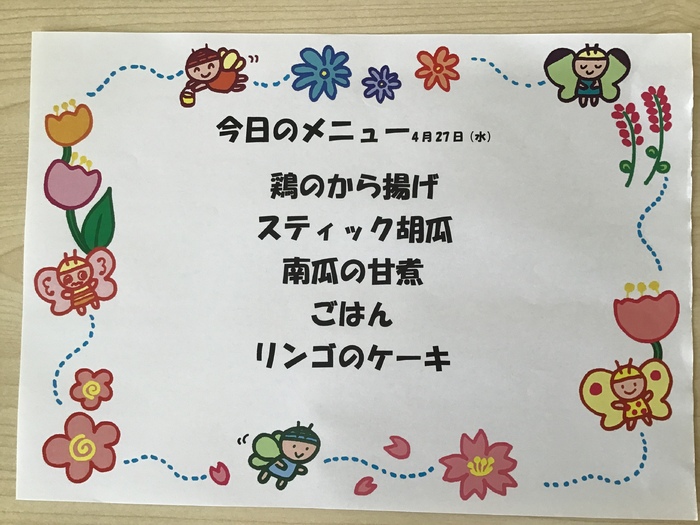 今日のメニュー4月27日（水）
鶏のから揚げ
スティック胡瓜
南瓜の甘煮
ごはん
リンゴのケーキ